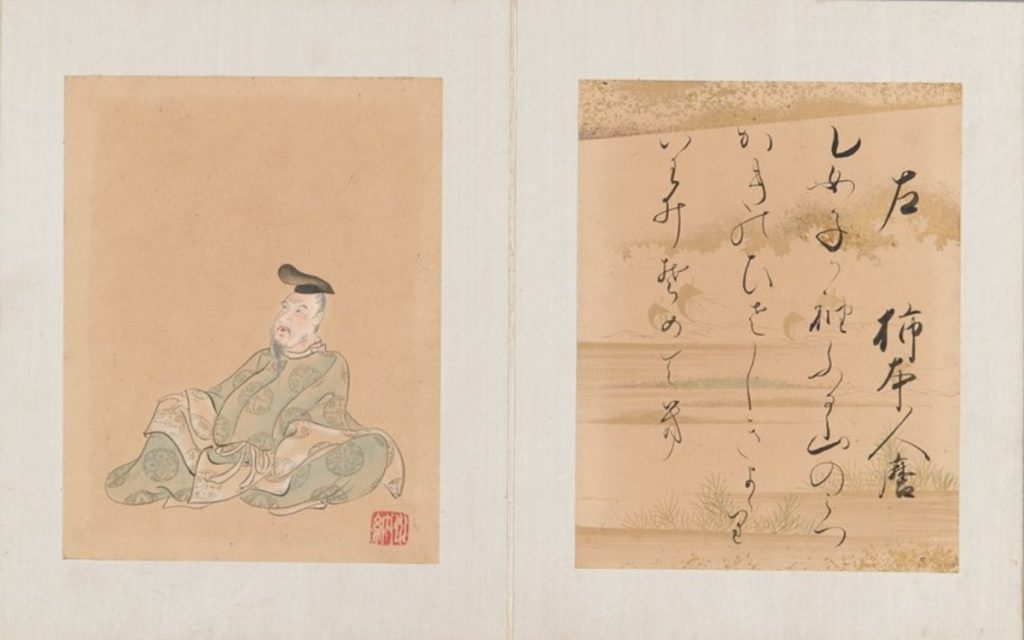 左　柿本人麿
乙女子か袖ふる山のみつ
かきのひさしきより
いわゐそめてき